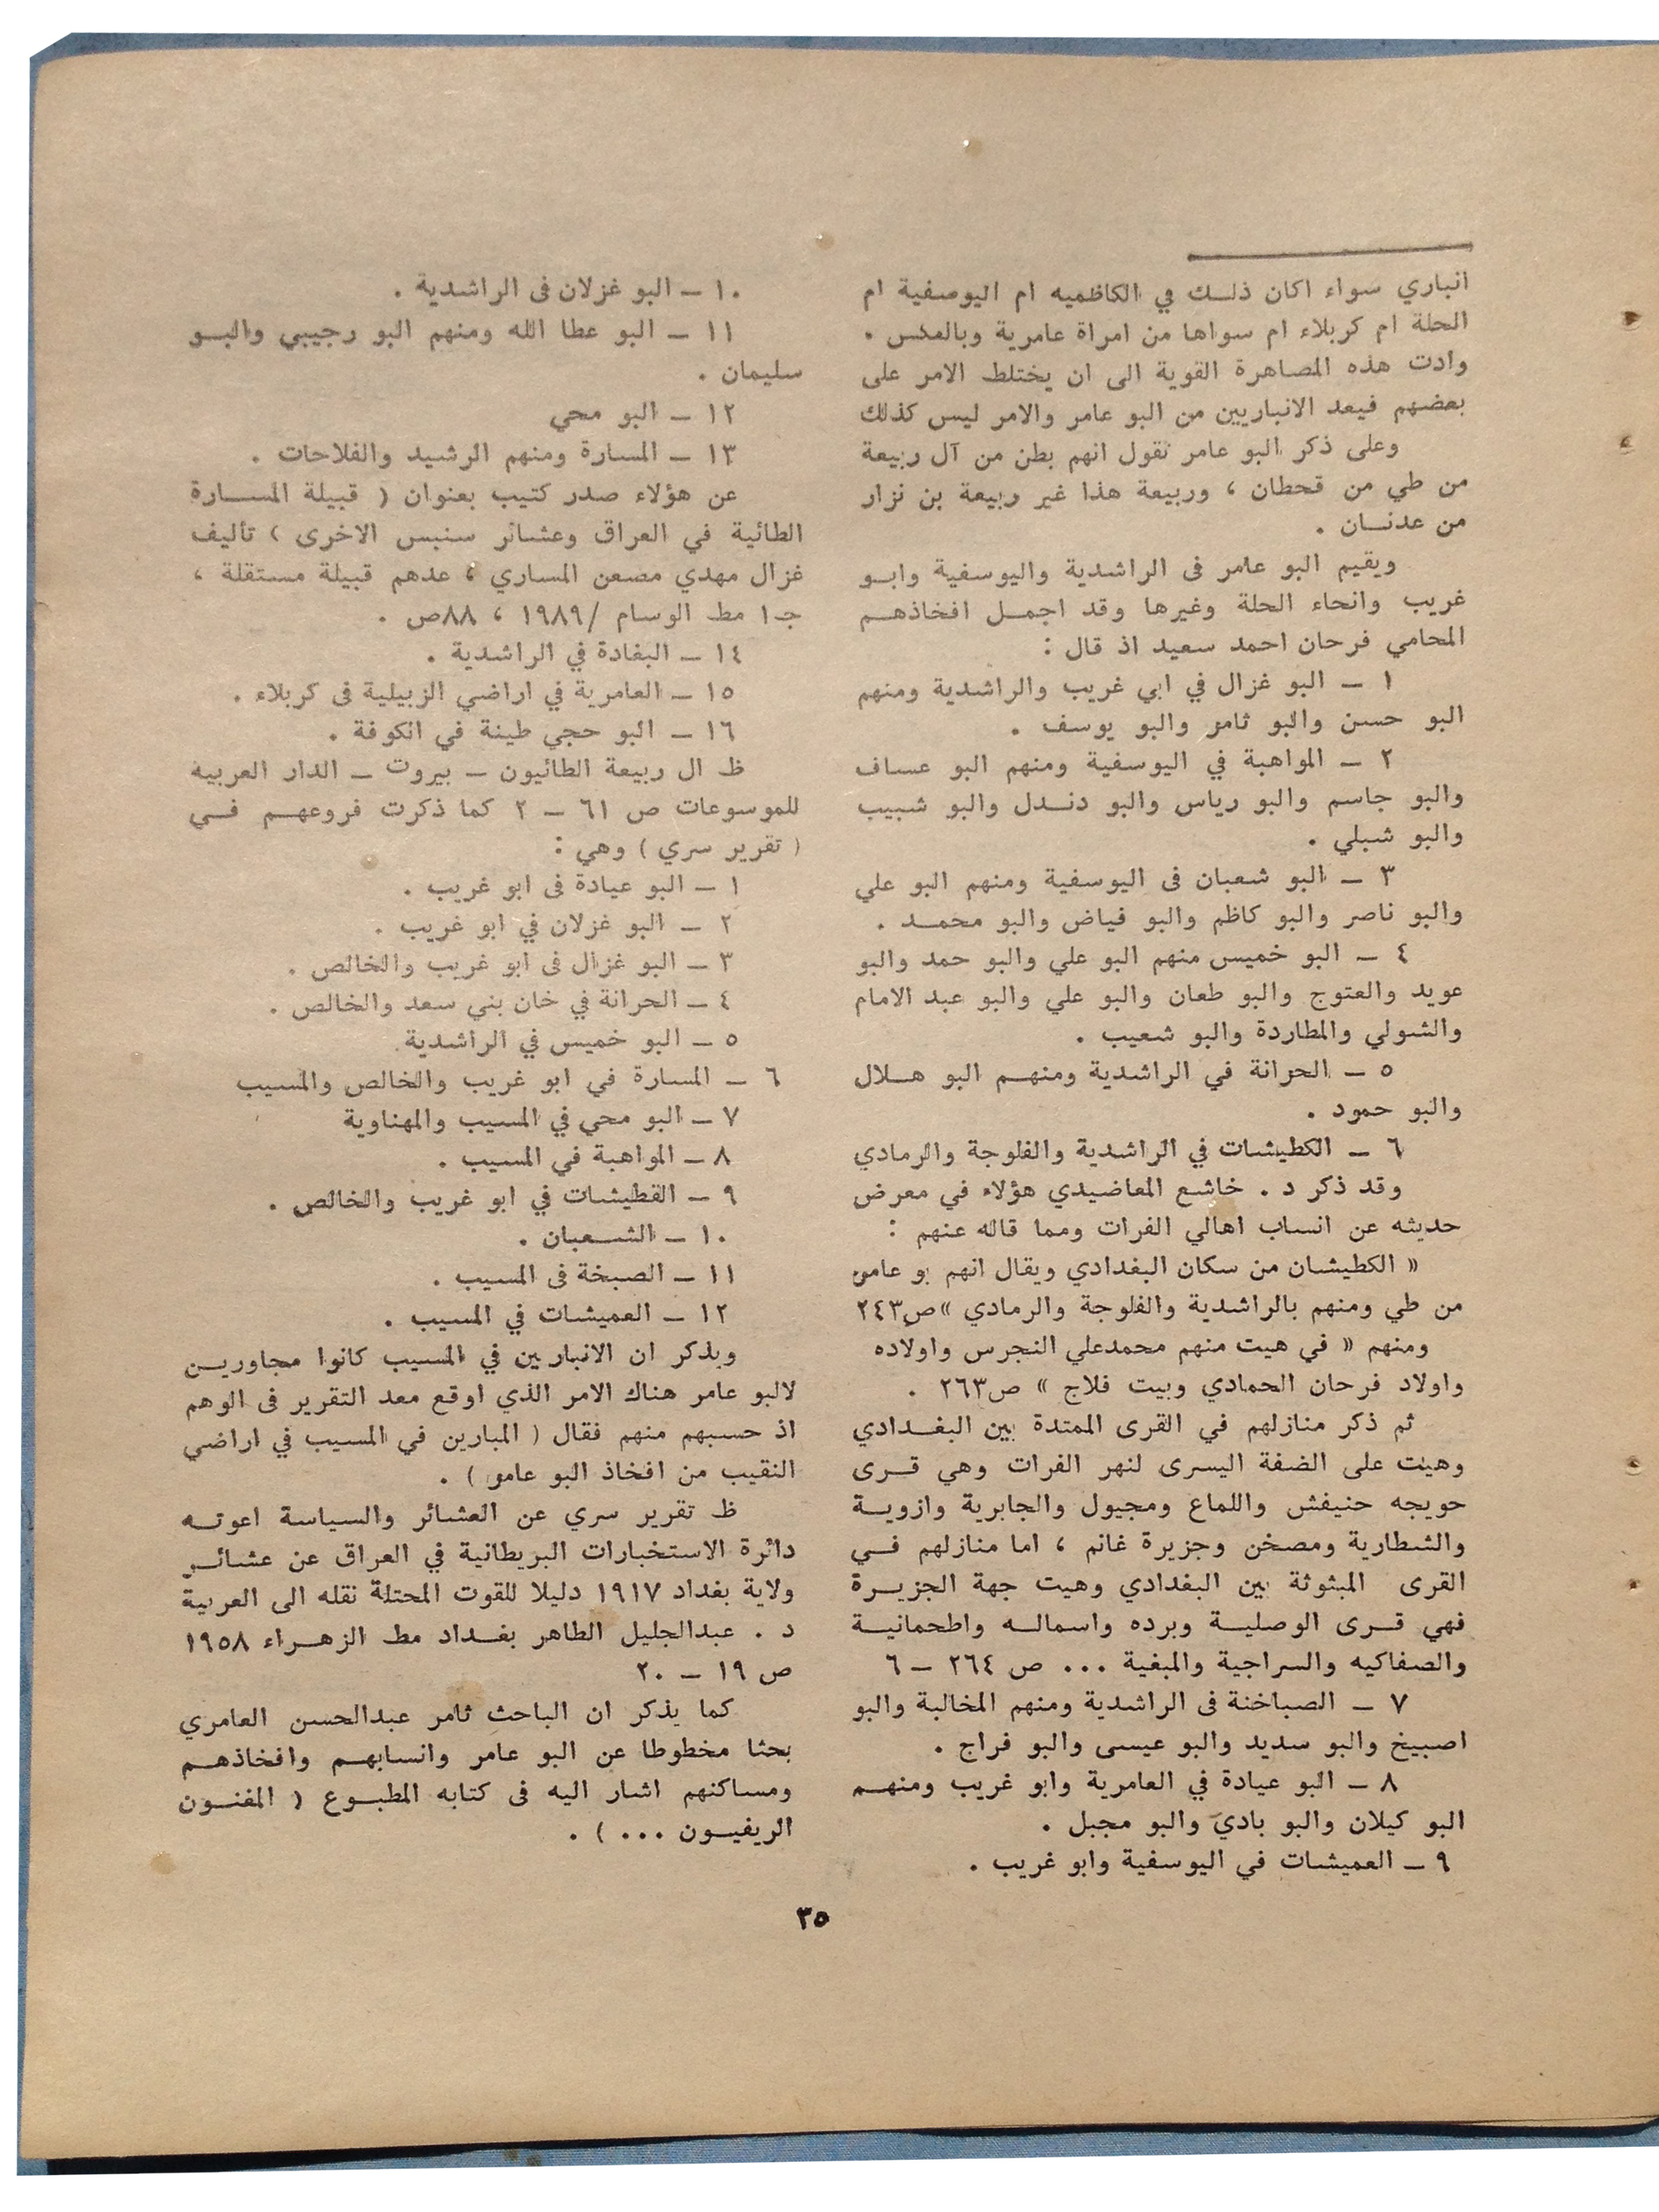 انباري سواء اكان ذلك في الكاظميه ام اليوسفية ام
الحلة ام كربلاء ام سواها من امراة عامرية وبالعكس .
وادت هذه المصاهرة القوية الى ان يختلط الامر على
بعضهم فيعد الانباريين من البو عامر والامر ليس كذلك
وعلى ذكر البو عامر نقول انهم بطن من آل ربيعة
من طي من قحطان ، وربيعة هذا غير ربيعة بن نزار
من عدنان .
ويقيم البو عامر فى الراشدية واليوسفية وابو
غريب وانحاء الحلة وغيرها وقد اجمل افخاذهم
المحامي فرحان احمد سعيد اذ قال :
١ ـ البو غزال في ابي غريب والراشدية ومنهم
البو حسن والبو ثامر والبو يوسف .
٢ ـ المواهبة في اليوسفية ومنهم البو عساف
والبو جاسم والبو رياس والبو دندل والبو شبيب
والبو شبلي .
٣ ـ البو شعبان فى اليوسفية ومنهم البو علي
والبو ناصر والبو كاظم والبو فياض والبو محمد .
٤ ـ البو خميس منهم البو علي والبو حمد والبو
عويد والعتوج والبو طعان والبو علي والبو عبد الامام
والشولي والمطاردة والبو شعيب .
٥ ـ الحرانة في الراشدية ومنهم البو هلال
والبو حمود .
٦ ـ الكطيشات في الراشدية والفلوجة والرمادي
وقد ذكر د . خاشع المعاضيدي هؤلاء في معرض
حديثه عن انساب اهالي الفرات ومما قاله عنهم :
« الكطيشان من سكان البغدادي ويقال انهم بو عامر
من طي ومنهم بالراشدية والفلوجة والرمادي » ص٢٤٣
ومنهم « في هيت منهم محمدعلي النجرس واولاده
واولاد فرحان الحمادي وبيت فلاج » ص٢٦٣ .
ثم ذكر منازلهم في القرى الممتدة بين البغدادي
وهيت على الضفة اليسرى لنهر الفرات وهي قرى
حويجه حنيفش واللماع ومجيول والجابرية وازوية
والشطارية ومصخن وجزيرة غانم ، اما منازلهم في
القرى المبثوثة بين البغدادي وهيت جهة الجزيرة
فهي قرى الوصلية وبرده واسماله واطحمانية
والصفاكيه والسراجية والمبغية ... ص ٢٦٤ ـ ٦
٧ ـ الصباخنة فى الراشدية ومنهم المخالبة والبو
اصبيخ والبو سديد والبو عيسى والبو فراج .
٨ ـ البو عيادة في العامرية وابو غريب ومنهم
البو كيلان والبو بادي والبو مجبل .
٩ ـ العميشات في اليوسفية وابو غريب .
١٠ ـ البو غزلان فى الراشدية .
١١ ـ البو عطا الله ومنهم البو رجيبي والبو
سليمان .
١٢ ـ البو محي
١٣ ـ المسارة ومنهم الرشيد والفلاحات .
عن هؤلاء صدر كتيب بعنوان ( قبيلة المسارة
الطائية في العراق وعشائر سنبس الاخرى ) تأليف
غزال مهدي مصعن المساري ، عدهم قبيلة مستقلة ،
جـ١ مطـ الوسام /١٩٨٩ ، ٨٨ص .
١٤ ـ البغادة في الراشدية .
١٥ ـ العامرية في اراضي الزبيلية فى كربلاء .
١٦ ـ البو حجي طينة في الكوفة .
ظ ال ربيعة الطائيون ـ بيروت ـ الدار العربيه
للموسوعات ص ٦١ ـ ٢ كما ذكرت فروعهم في
( تقرير سري ) وهي :
١ ـ البو عيادة فى ابو غريب .
٢ ـ البو غزلان في ابو غريب .
٣ ـ البو غزال فى ابو غريب والخالص .
٤ ـ الحرانة في خان بني سعد والخالص .
٥ ـ البو خميس في الراشدية
٦ ـ المسارة في ابو غريب والخالص والمسيب
٧ ـ البو محي في المسيب والمهناوية
٨ ـ المواهبة في المسيب .
٩ ـ القطيشات في ابو غريب والخالص .
١٠ ـ الشعبان .
١١ ـ الصبخة فى المسيب .
١٢ ـ العميشات في المسيب .
ويذكر ان الانباريين في المسيب كانوا مجاورين
لالبو عامر هناك الامر الذي اوقع معد التقرير فى الوهم
اذ حسبهم منهم فقال ( المبارين في المسيب في اراضي
النقيب من افخاذ البو عامر ) .
ظ تقرير سري عن العشائر والسياسة اعوته
دائرة الاستخبارات البريطانية في العراق عن عشائر
ولاية بغداد ١٩١٧ دليلا للقوت المحتلة نقله الى العربية
د . عبدالجليل الطاهر بغداد مطـ الزهراء ١٩٥٨
ص ١٩ ـ ٢٠
كما يذكر ان الباحث ثامر عبدالحسن العامري
بحثا مخطوطا عن البو عامر وانسابهم وافخاذهم
ومساكنهم اشار اليه فى كتابه المطبوع ( المغنون
الريفيون ... ) .
٣٥